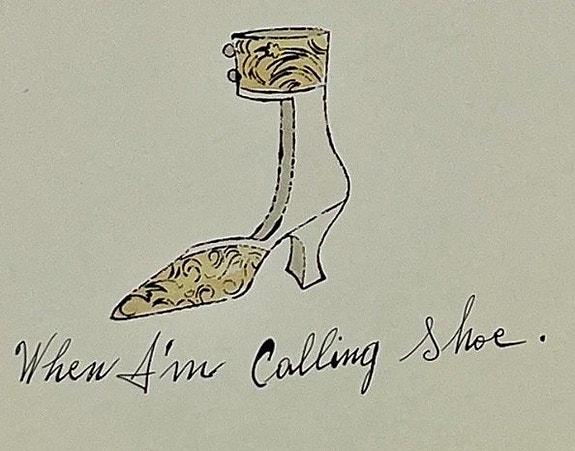 When I'm Calling Shoe.